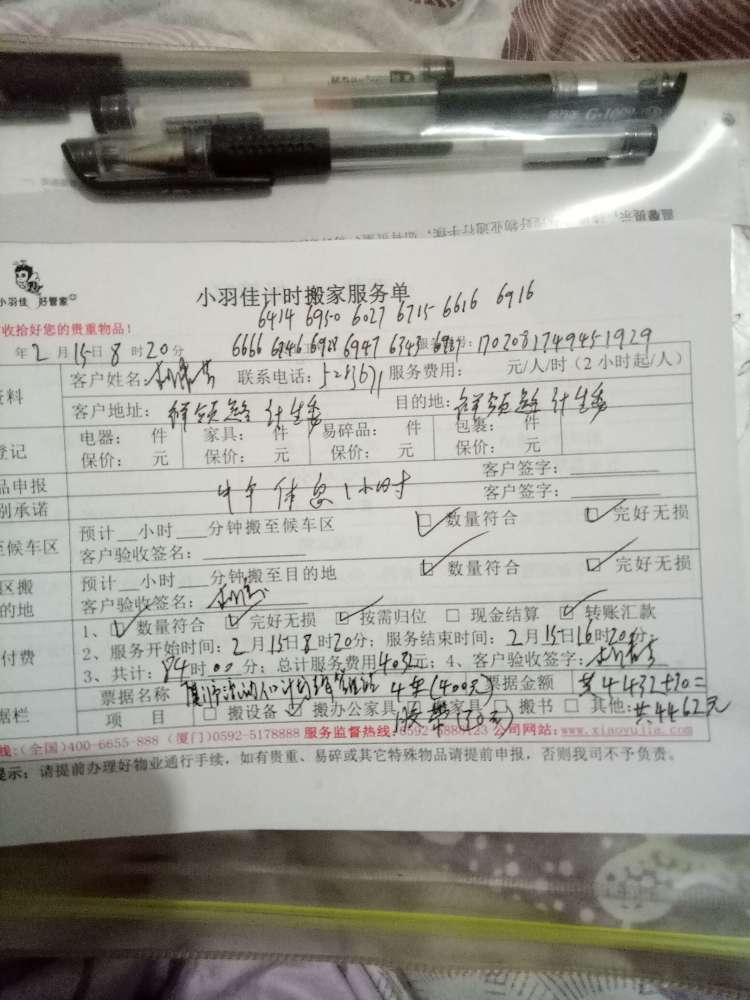 G-1008
小羽佳 好管家
小羽佳计时搬家服务单
6414 6950 6027 6715 6616 6916
收拾好您的贵重物品！
6666 6946 6928 6947 6343 6987
年2月15日8时20分 号：170208174945 1929
资料 客户姓名： 联系电话： 服务费用： 元/人/时（2小时起/人）
客户地址： 计生委 目的地： 计生委
登记 电器： 件 家具： 件 易碎品： 件 包裹： 件
保价： 元 保价： 元 保价： 元 保价： 元
品申报 中午休息1小时 客户签字：
别承诺 客户签字：
至候车区 预计__小时___分钟搬至候车区 ☑ 数量符合 ☑ 完好无损
客户验收签名：
区搬 预计__小时___分钟搬至目的地 ☑ 数量符合 ☑ 完好无损
的地 客户验收签名：
1、☑ 数量符合 ☑ 完好无损 ☑ 按需归位 □ 现金结算 ☑ 转账汇款
付费 2、服务开始时间：2月15日8时20分；服务结束时间：2月15日16时20分；
3、共计：84时00分；总计服务费用4032元；4、客户验收签字：
票据名称 4车(400元) 票据金额 共4432+30=
据栏 项 目 □ 搬设备 ☑ 搬办公家具 家具 □ 搬书 □ 其他：共4462元
胶带(30元)
线：(全国)400-6655-888 (厦门)0592-5178888 服务监督热线：0592-5889123 公司网站：www.xiaoyujia.com
提示：请提前办理好物业通行手续，如有贵重、易碎或其它特殊物品请提前申报，否则我司不予负责。